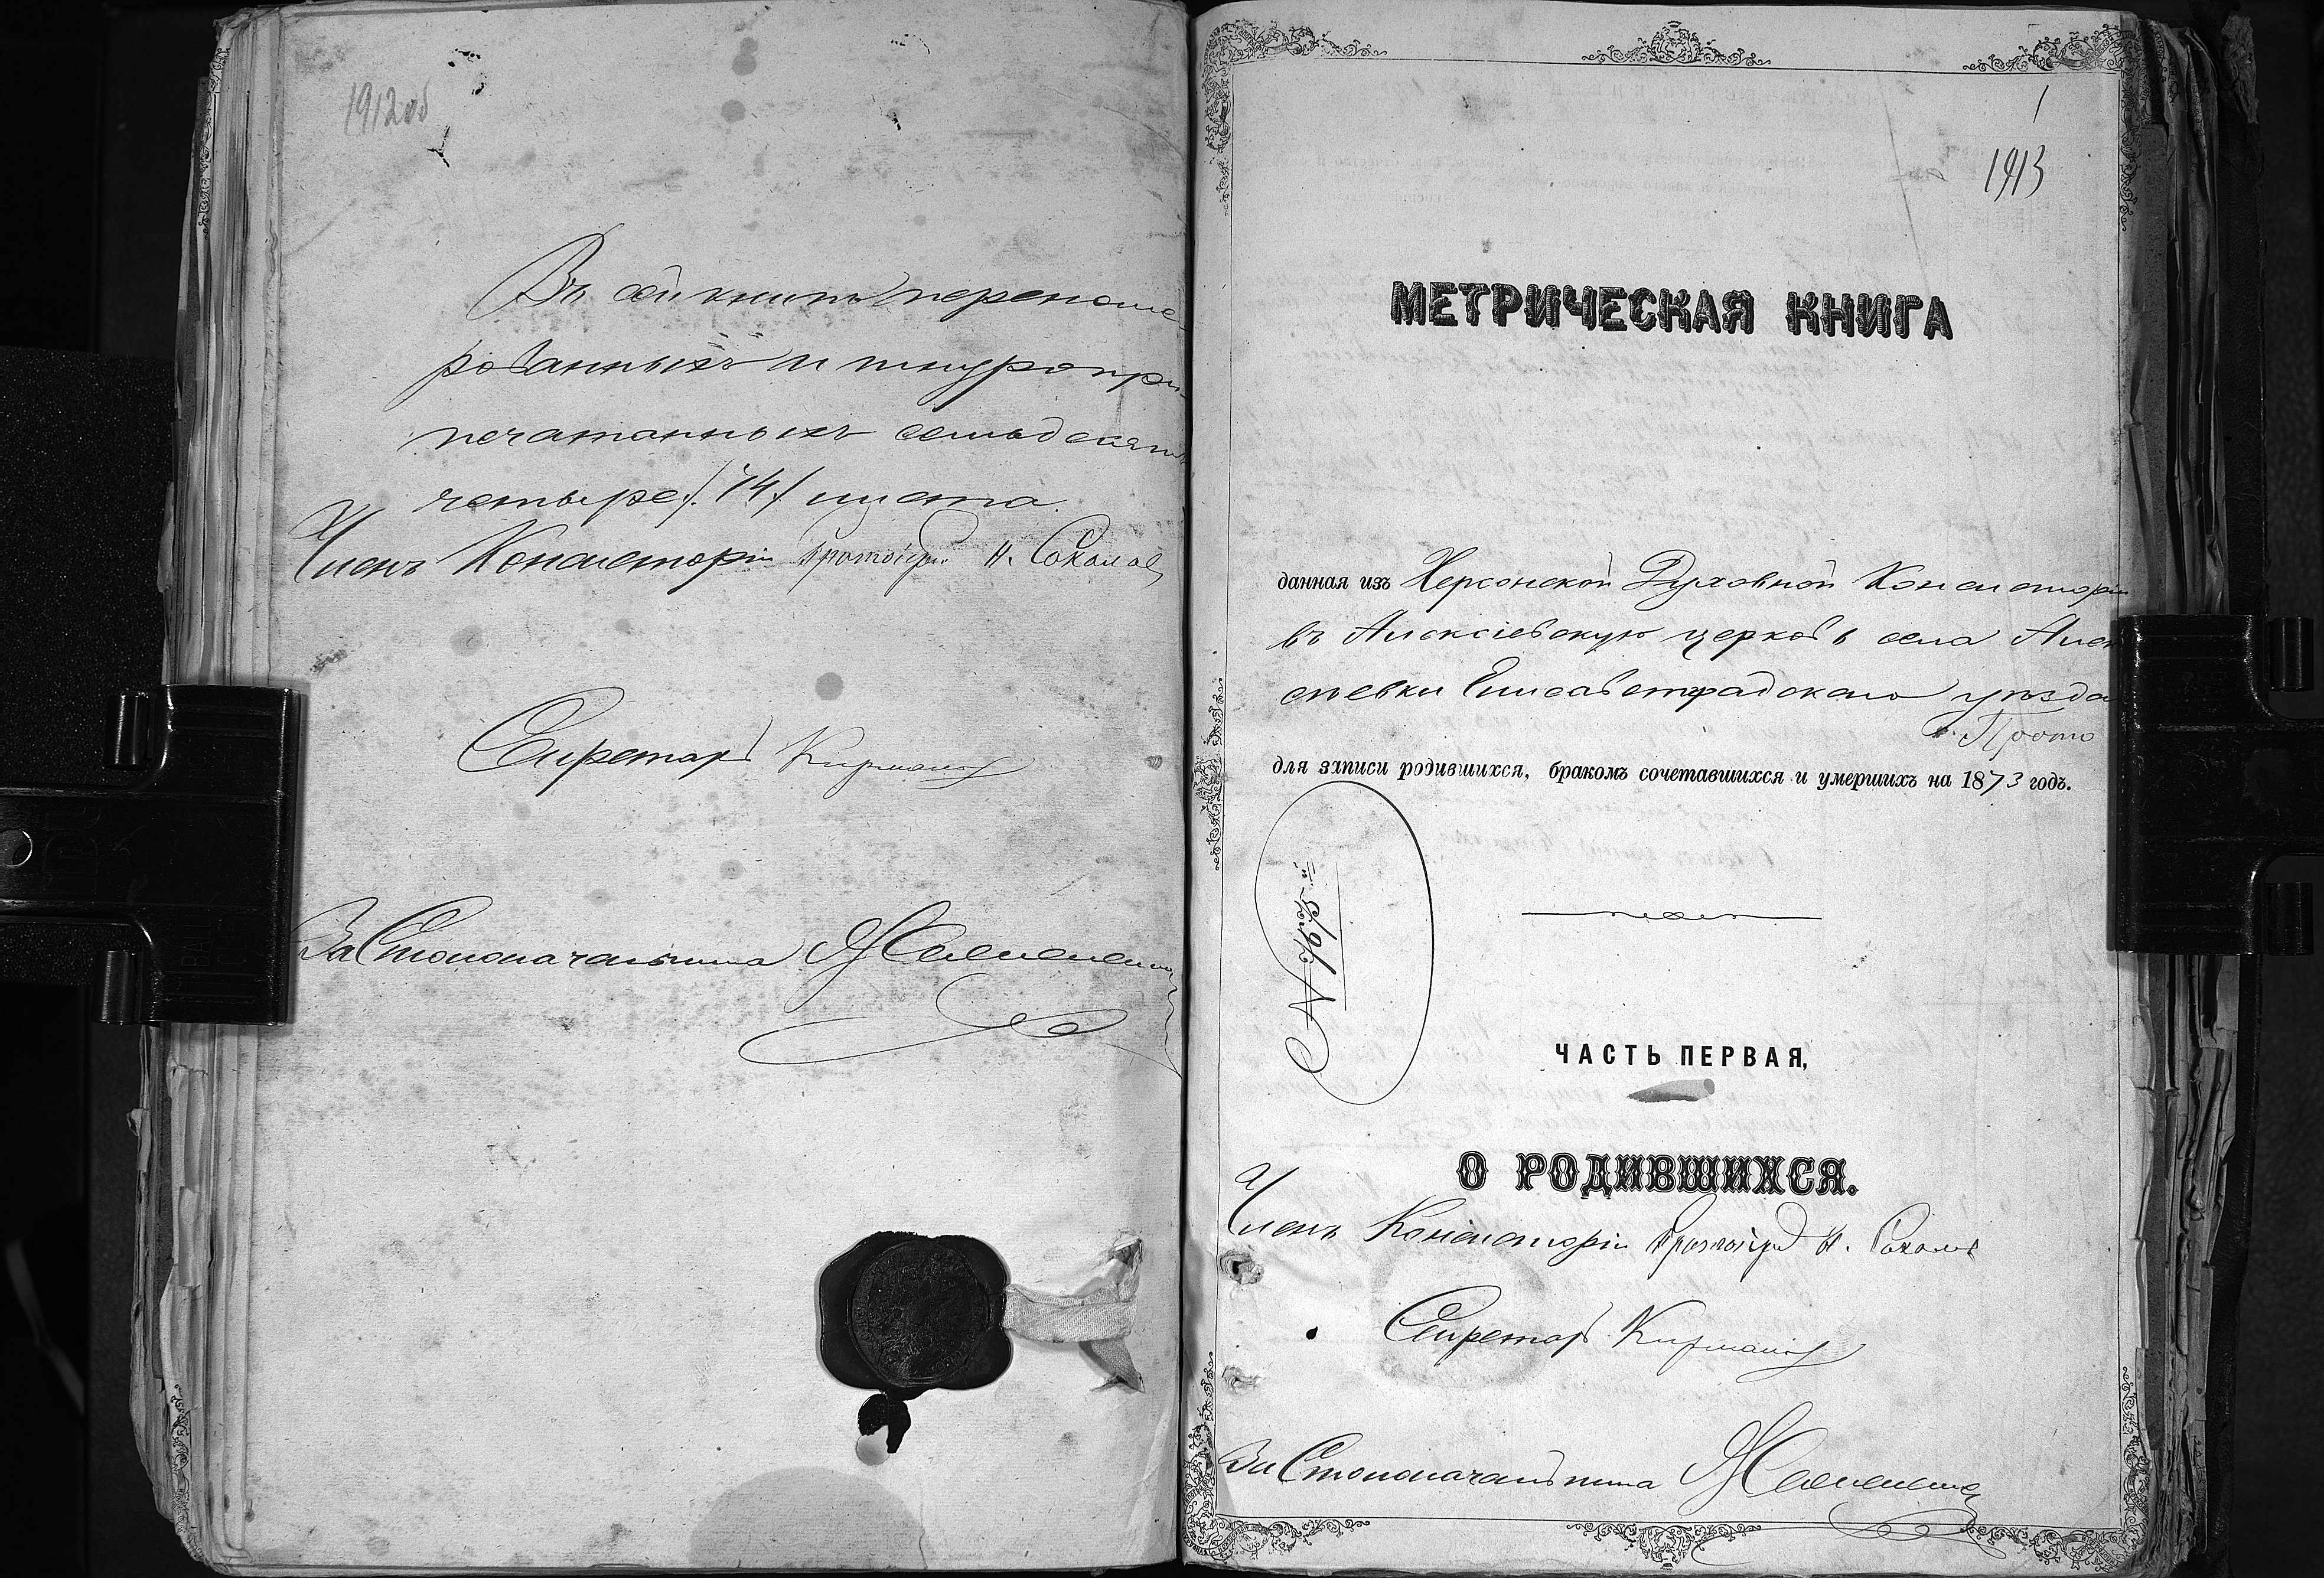 1912об
Въ сей книгѣ перенуме-
рованныхъ и шнуропри-
печатанныхъ семьдесятъ
четыре /74/ листа.
Членъ Консисторіи Протоіерей Н. Соколовъ
Секретарь
За Столоначальника
1
1913
МЕТРИЧЕСКАЯ КНИГА
данная изъ Херсонской Духовной Консисторіи
въ Алексіевскую церковь села Алек
сѣевки Елисаветградскаго уѣзда
Прото
для записи родившихся, бракомъ сочетавшихся и умершихъ на 1873 годъ.
ЧАСТЬ ПЕРВАЯ,
О РОДИВШИХСЯ.
Членъ Консисторіи Протоіерей Н. Соколовъ
Секретарь
За Столоначальника